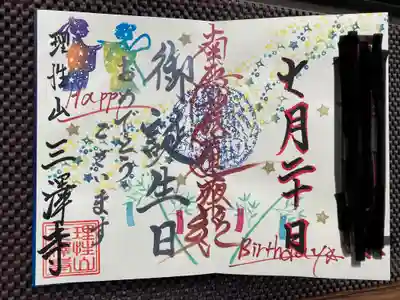 七月二十日
南無妙法蓮華経
御誕生日
おめでとう
ございます
Happy
Birthday
理性山 三澤寺